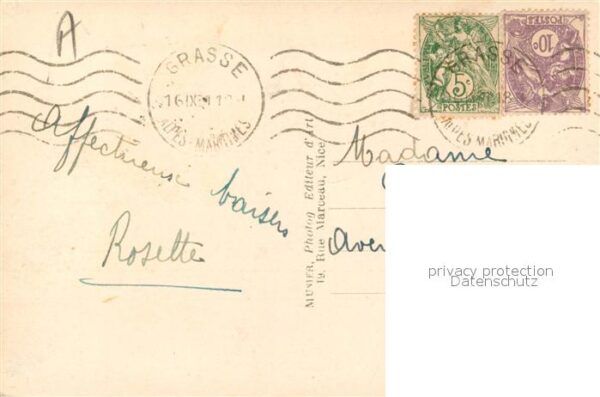 A
GRASSE
ALPES-MARITIMES
5c
POSTES
POSTES
10
GRASSE
ALPES-MARITIMES
Affectueux baisers
Rosette
MUSIER, Photog Editeur d'Art
19, Rue Marceau, Nice
Madame
Aven
privacy protection
Datenschutz